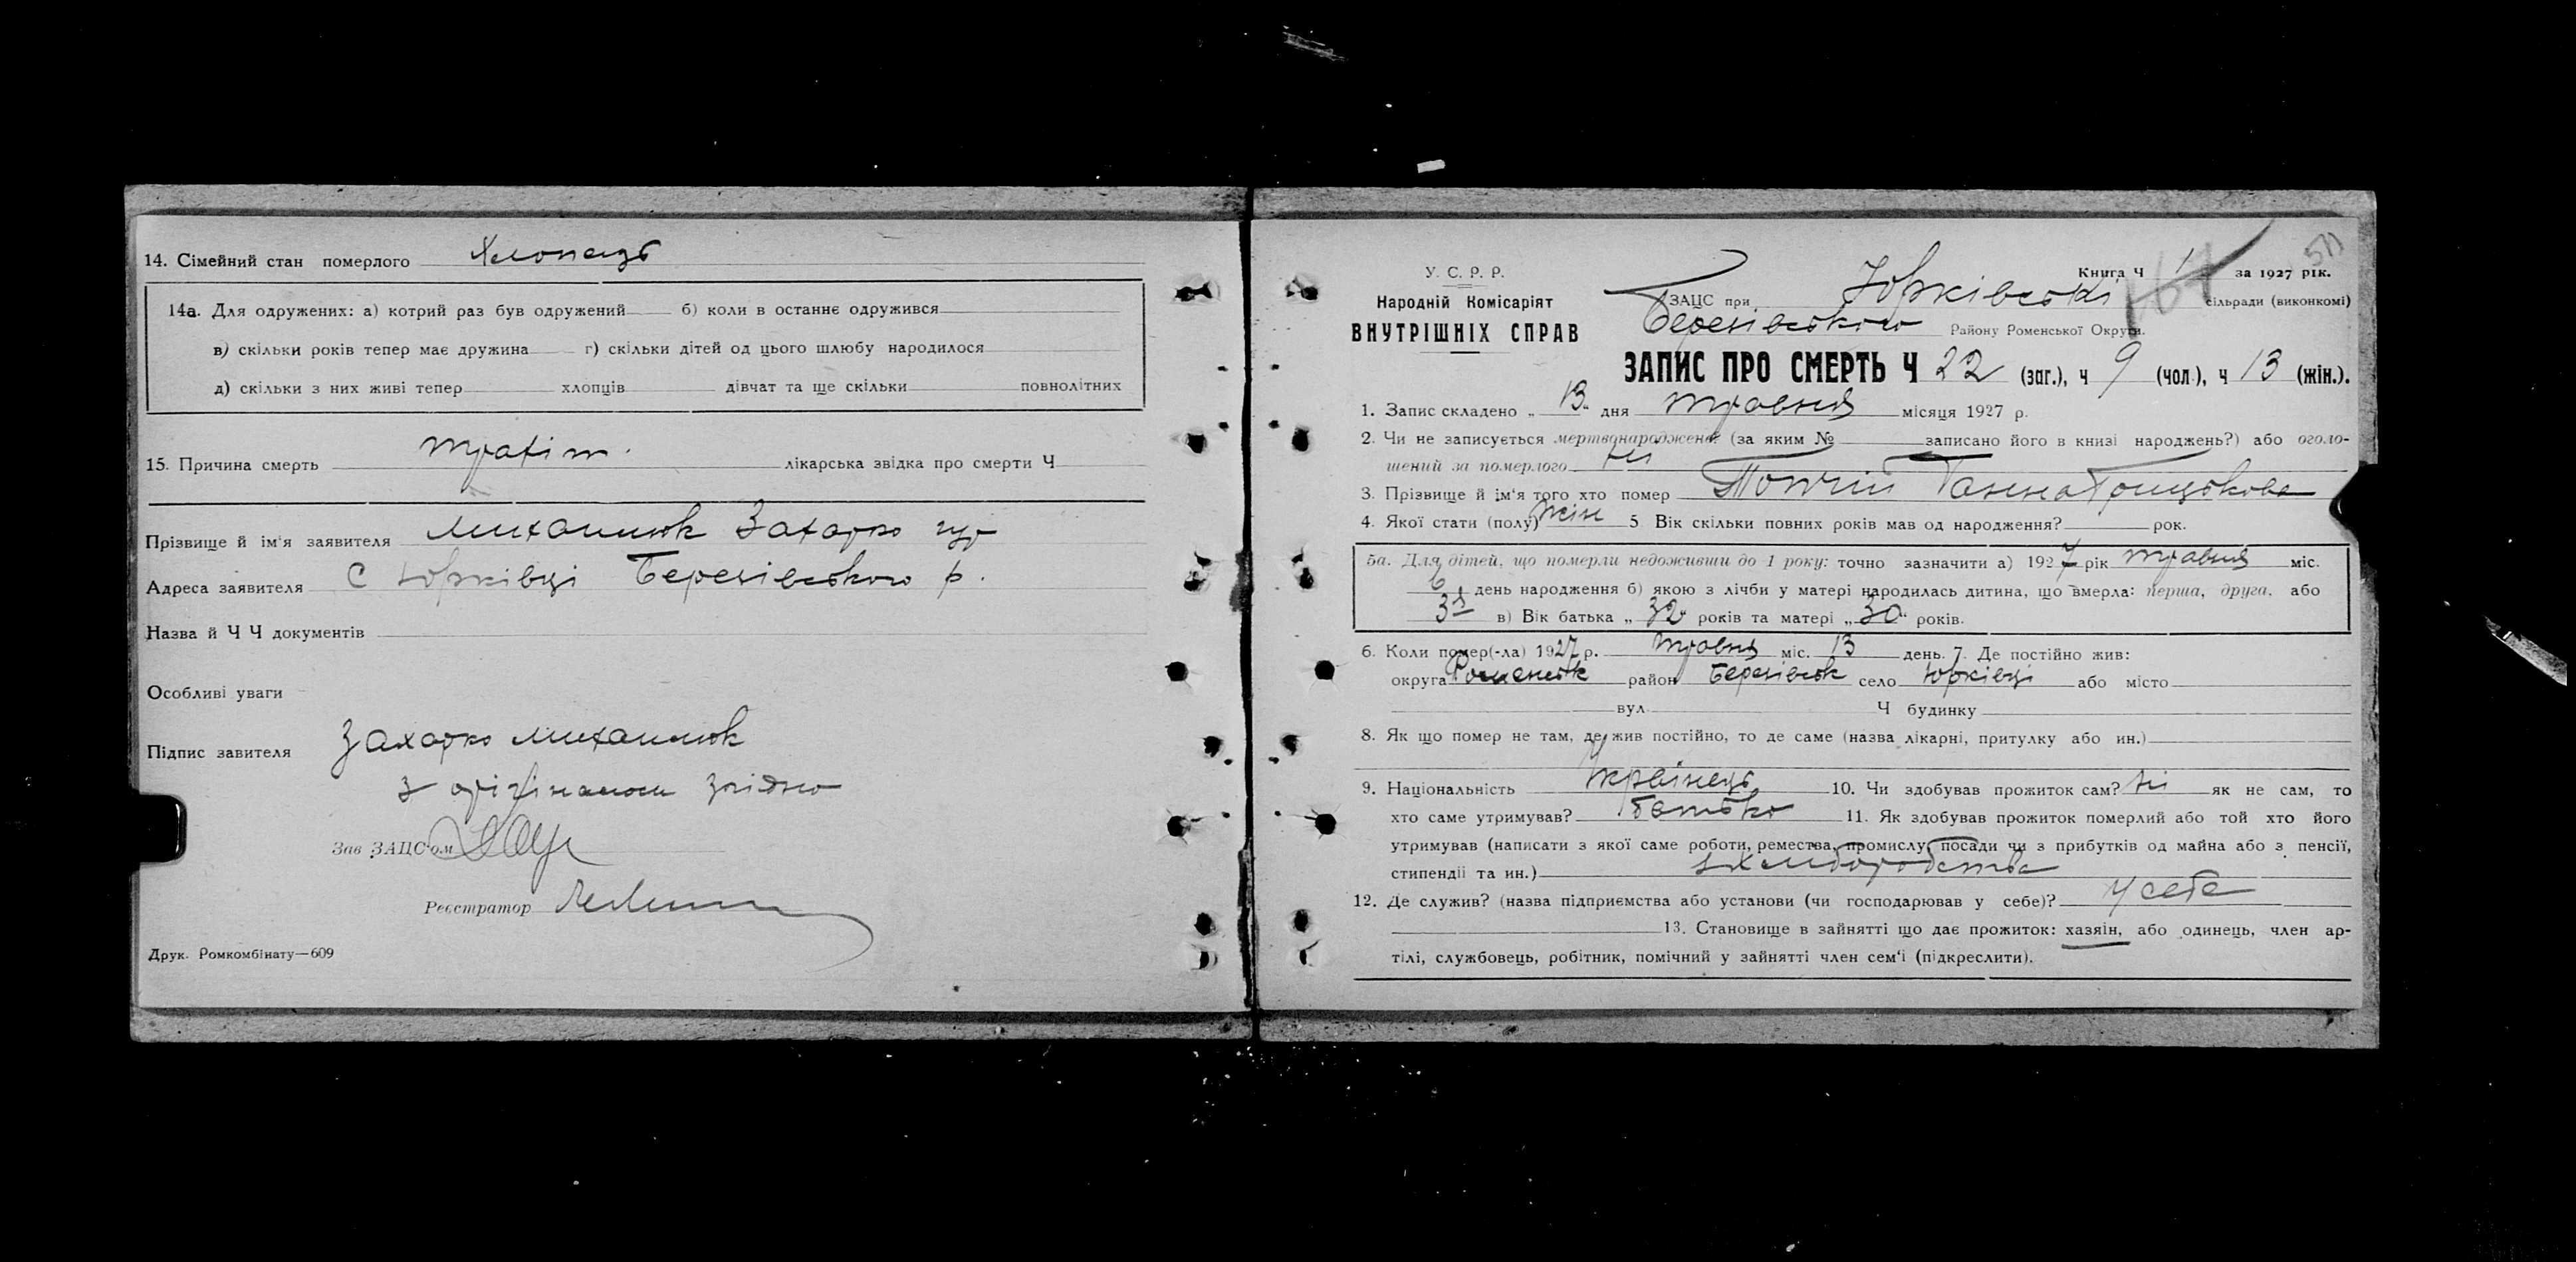 14. Сімейний стан померлого Хлопець
14а. Для одружених: а) котрий раз був одружений б) коли в останнє одружився
в) скільки років тепер має дружина г) скільки дітей од цього шлюбу народилося
д) скільки з них живі тепер хлопців дівчат та ще скільки повнолітних
15. Причина смерть лікарська звідка про смерти Ч
Прізвище й ім'я заявителя Захарко
Адреса заявителя С Юрківці Березівського р.
Назва й Ч Ч документів
Особливі уваги
Підпис завителя Захарко
з оріґіналом згідно
Зав ЗАЦС'ом
Реєстратор
Друк. Ромкомбінату—609
511
У. С. Р. Р.
Книга Ч 1 за 1927 рік.
Народній Комісаріят
ВНУТРІШНІХ СПРАВ
ЗАЦС при Юрківські сільради (виконкомі)
Березівського Району Роменської Округи.
ЗАПИС ПРО СМЕРТЬ Ч 22 (заг.), ч 9 (чол.), ч 13 (жін.).
1. Запис складено „ 13 " дня травня місяця 1927 р.
2. Чи не записується мертвонароджене (за яким № записано його в книзі народжень?) або оголо-
шений за померлого ні
3. Прізвище й ім'я того хто помер Ганна Грицькова
4. Якої стати (полу) жін 5 Вік скільки повних років мав од народження? рок.
5а. Для дітей, що померли недоживши до 1 року: точно зазначити а) 1927 рік травня міс.
6 день народження б) якою з лічби у матері народилась дитина, що вмерла: перша, друга, або
3я в) Вік батька „ 32 " років та матері „ 30 " років.
6. Коли помер(-ла) 1927 р. травня міс. 13 день. 7. Де постійно жив:
округа Роменськ район Березівськ село Юрківці або місто
вул Ч будинку
8. Як що помер не там, де жив постійно, то де саме (назва лікарні, притулку або ин.)
9. Національність Українець 10. Чи здобував прожиток сам? ні як не сам, то
хто саме утримував? батько 11. Як здобував прожиток померлий або той хто його
утримував (написати з якої саме роботи, ремества, промислу, посади чи з прибутків од майна або з пенсії,
стипендії та ин.) з хліборобства
12. Де служив? (назва підприємства або установи (чи господарював у себе)? у себе
13. Становище в зайнятті що дає прожиток: хазяін, або одинець, член ар-
тілі, службовець, робітник, помічний у зайнятті член сем'і (підкреслити).